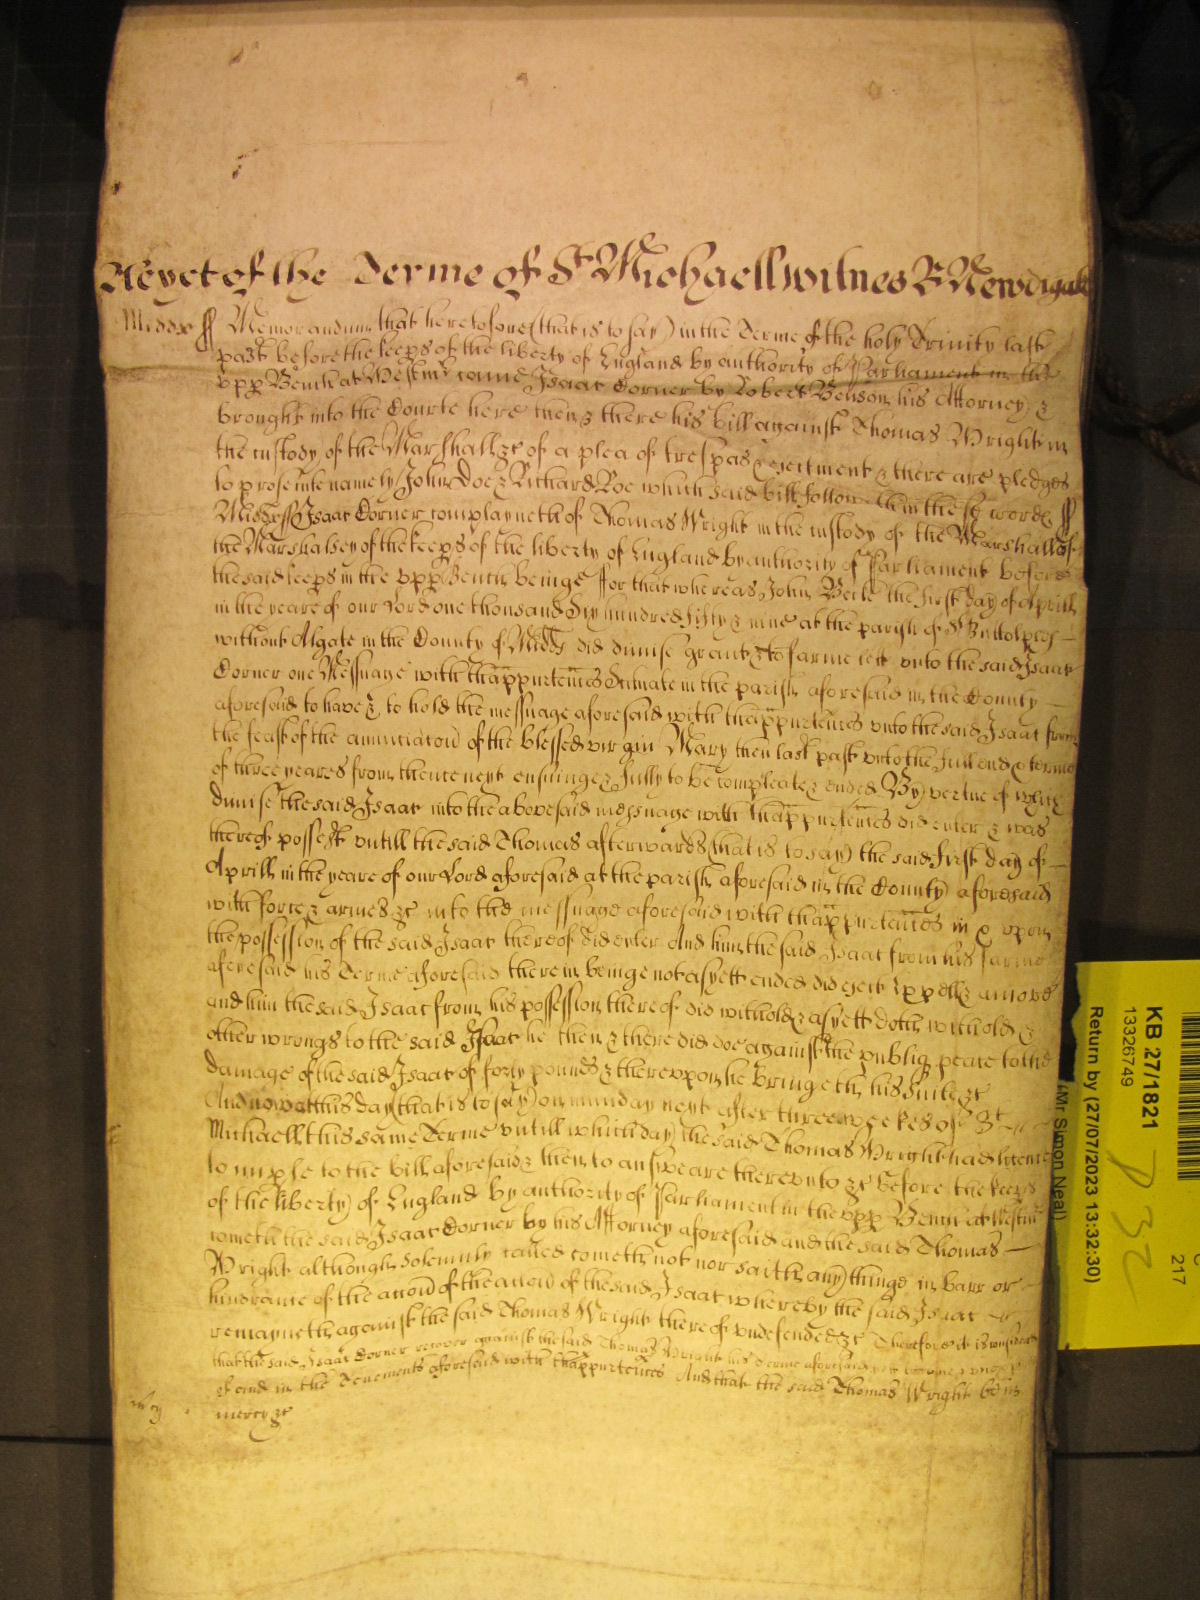 Adhuc of the Terme of St Michaell wittnes R Newdigate
Middx ss Memorandum that heretofore (that is to say) in the Terme of the holy Trinity last
past before the keeps of the liberty of England by authority of Parliament in the
upp Bench at Westmr came Isaac Corner by Robert Benson his Attorney &
brought into the Courte here then & there his bill against Thomas Wright in
the custody of the Marshall &c of a plea of trespas & ejectment & there are pledges
to prosecute namely John Doe & Richard Roe which said bill followeth in these words ss
Middx ss Isaac Corner complayneth of Thomas Wright in the custody of the Marshall of
the Marshalsey of the keeps of the liberty of England by authority of Parliament before
the said keeps in the upp Bench beinge ffor that whereas John the first day of Aprill
in the yeare of our Lord one thousand six hundred fifty & nine at the parish of St Buttolphes
without Algate in the County of Middx did dimise grant & to farme lett unto the said Isaac
Corner one Messuage with thappurtences scituate in the parish aforesaid in the County
aforesaid to have & to hold the messuage aforesaid with thappurtences unto the said Isaac from
the feast of the annunciacon of the blessed virgin Mary then last past unto the full end & terme
of three yeares from thence next ensuinge & fully to be compleate & ended By vertue of which
dimise the said Isaac into the abovesaid messuage with thappurtences did enter & was
thereof possest untill the said Thomas afterwards (that is to say) the said first day of
Aprill in the yeare of our Lord aforesaid at the parish aforesaid in the County aforesaid
with force & armes &c into the messuage aforesaid with thappurtences in & upon
the possession of the said Isaac thereof did enter And him the said Isaac from his farme
aforesaid his Terme aforesaid therein beinge not as yett ended did eject expell & amove
and him the said Isaac from his possession thereof did withold & as yett doth withold &
other wrongs to the said Isaac he then & there did doe against the publiq peace to the
damage of the said Isaac of forty pounds & thereupon he bringeth his suite &c
And now at this day (that is to say) on munday next after three weekes of St
Michaell this same Terme untill which day the said Thomas Wright had licence
to imple to the bill aforesaid & then to answeare thereunto &c before the keeps
of the liberty of England by authority of Parliament in the upp Bench at Westmr
cometh the said Isaac Corner by his Attorney aforesaid and the said Thomas
Wright although solemnly called cometh not nor saith any thinge in barr or
hindrance of the accon of the said Isaac whereby the said Isaac
remayneth against the said Thomas Wright thereof undefended &c Therefore it is considered
that the said Isaac Corner recover against the said Thomas Wright his terme aforesaid yet to come
of and in the Tenements aforesaid with thappurtences And that the said Thomas Wright be in
mercy &c
KB 27/1821
13326749
Return by (27/07/2023 13:32:30)
(Mr Simon Neal)
217